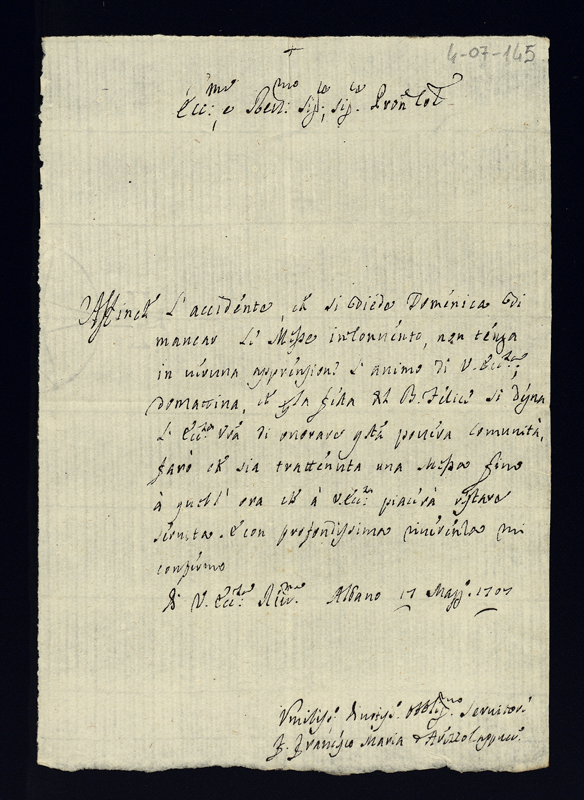 4-07-145
+
Ecc:mo e Rev:mo Sig:re, Sig:re Pron Col
Affinche l'accidente, che si diede Domenica di
mancar le Messe in Convento, non tenga
in veruna apprensione l'animo di V. Ecc:za,
domattina, che per la festa del B. Felice si degna
l'Ecc:za Vra di onorare qsta povera comunità,
farò che sia trattenuta una Messa fino
à quell'ora che à V. Ecc:za piacerà restare
servita. E con profondissima riverenza mi
confermo
Di V. Ecc:za Rev:ma Albano 17 Magg. 1707
Umiliss. Divotiss. Obblig:mo Servitore
F. Francesco Maria d'Arezzo Cappuc.